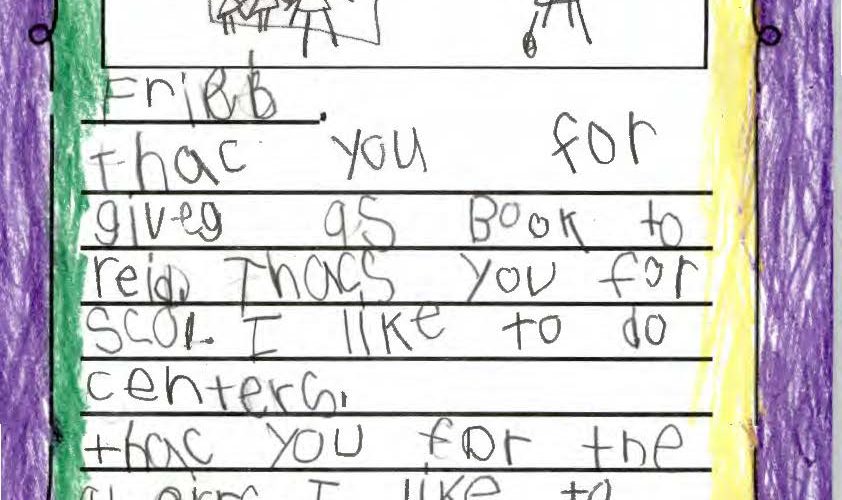 Fribb.
thac you for
giveg as Book to
reid. Thacs you for
scol. I like to do
centers.
thac you for the
I like to